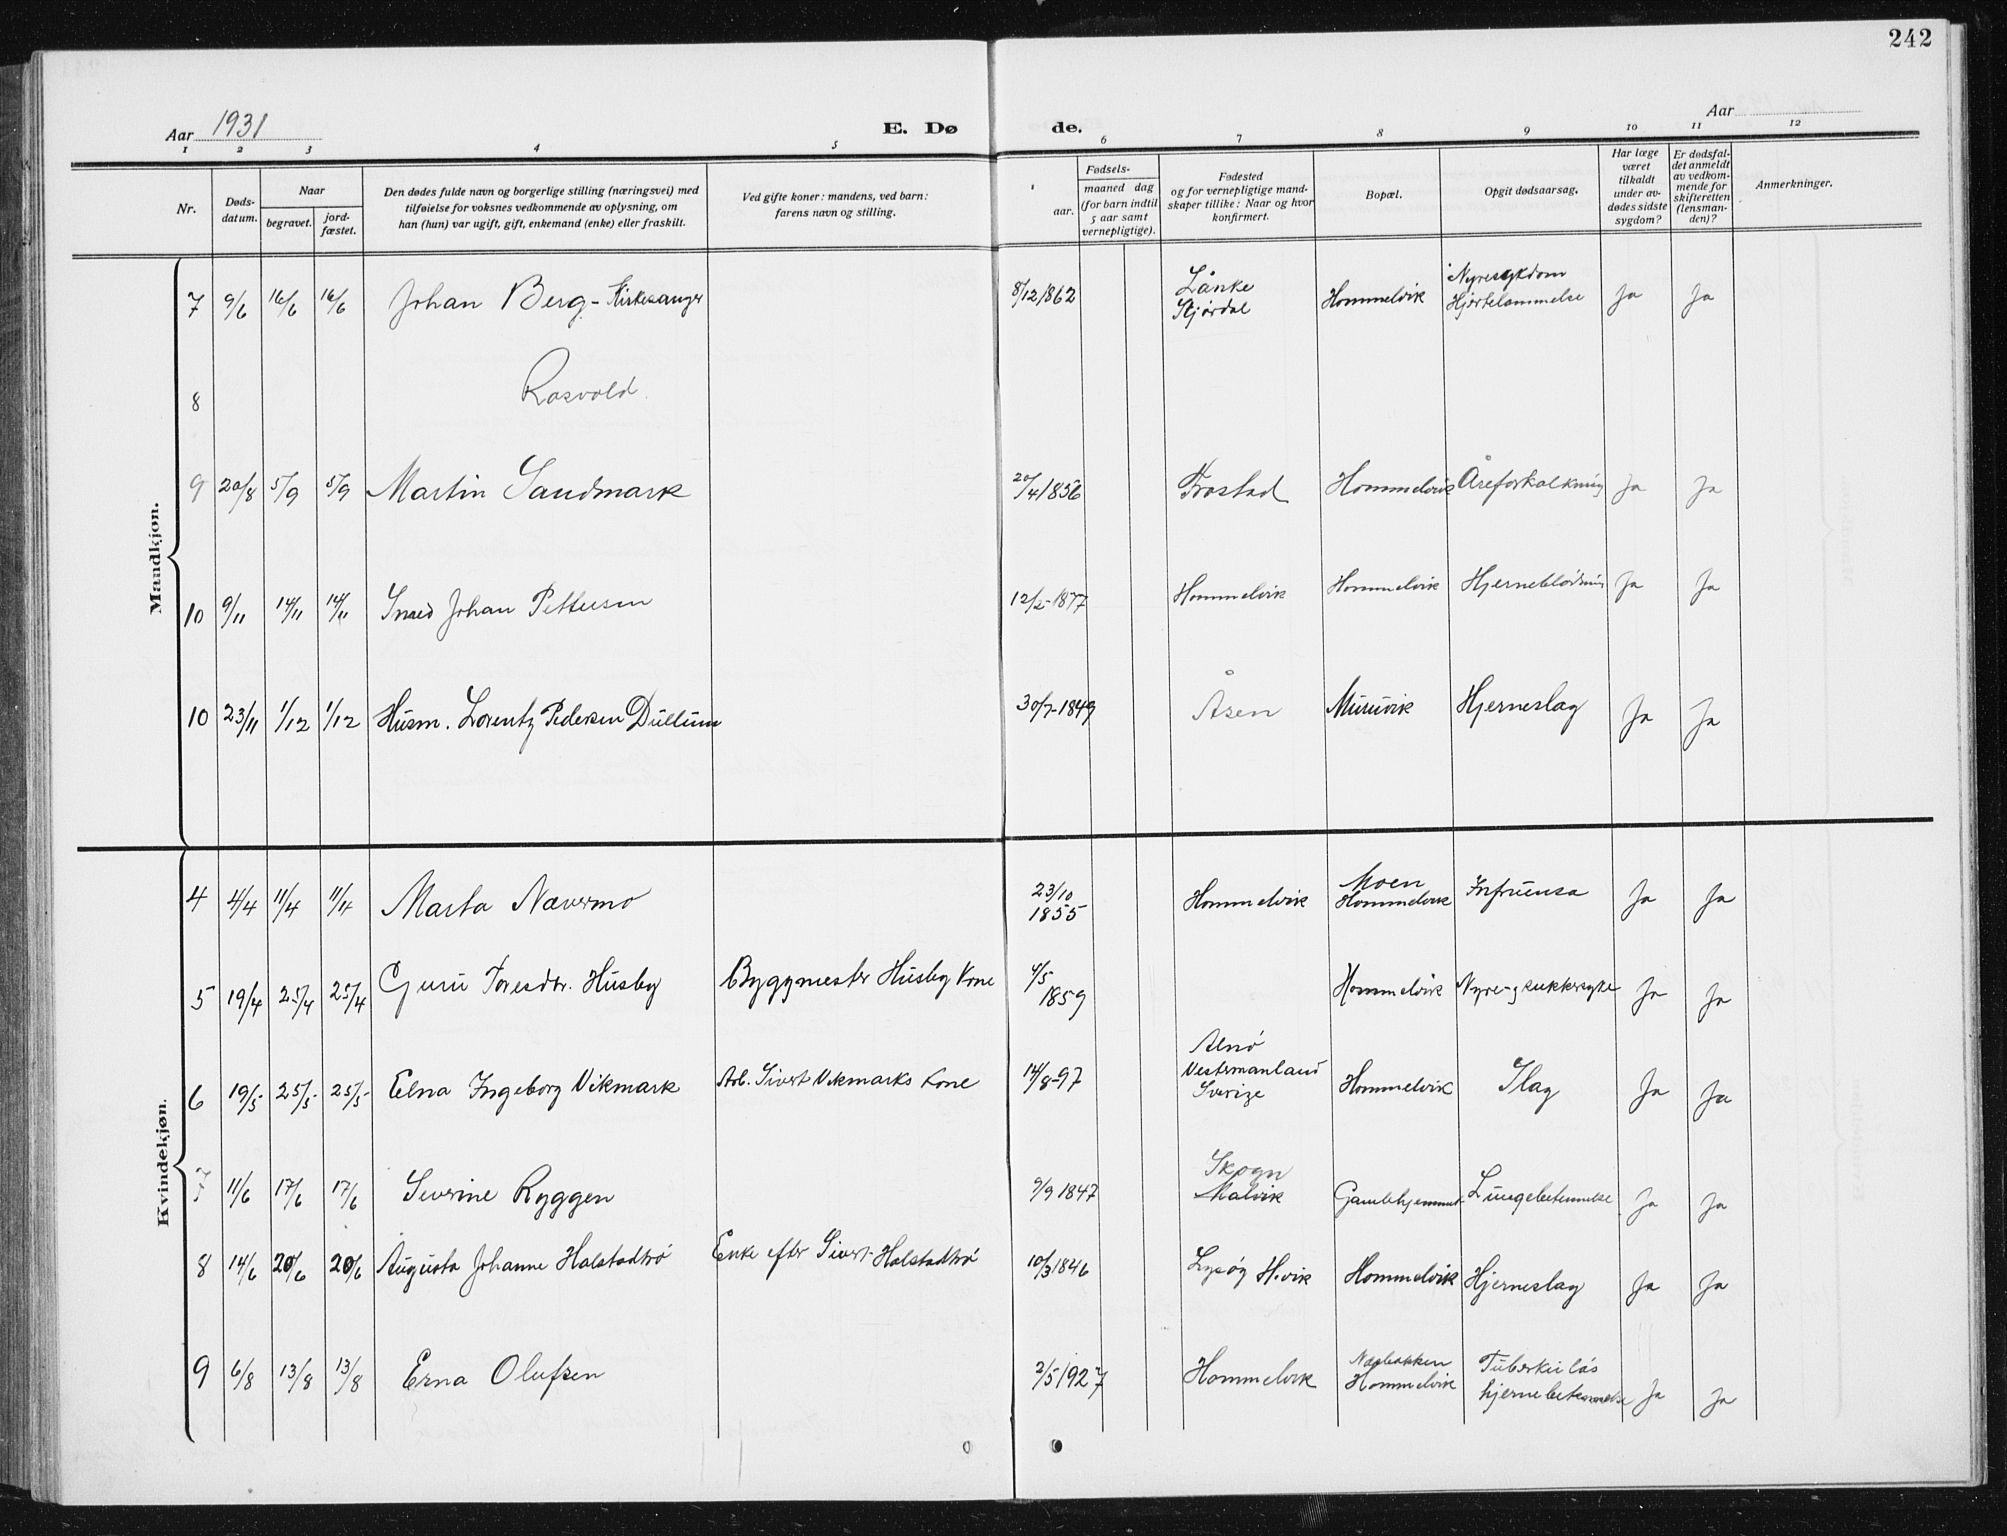 242
Aar 1931
E. Dø
de.
Aar
1 2 3 4 5 6 7 8 9 10 11 12
Nr.
Døds-
datum.
Naar
begravet.
jord-
fæstet.
Den dødes fulde navn og borgerlige stilling (næringsvei) med
tilføielse for voksnes vedkommende av oplysning, om
han (hun) var ugift, gift, enkemand (enke) eller fraskilt.
Ved gifte koner: mandens, ved barn:
farens navn og stilling.
Fødsels-
aar.
maaned dag
(for barn indtil
5 aar samt
vernepligtige).
Fødested
og for vernepligtige mand-
skaper tillike: Naar og hvor
konfirmert.
Bopæl.
Opgit dødsaarsag.
Har læge
været
tilkaldt
under av-
dødes sidste
sygdom?
Er dødsfal-
det anmeldt
av vedkom-
mende for
skifteretten
(lensman-
den)?
Anmerkninger.
Mandkjøn.
7 9/6 16/6 16/6 Johan Berg - Kirkesanger 8/12 1862 Lånke
Stjørdal Hommelvik Nyresykdom
Hjertelammelse Ja Ja
8 Rosvold
9 20/8 5/9 5/9 Martin Sandmark 20/4 1856 Frostad Hommelvik Åreforkalkning Ja Ja
10 9/11 14/11 14/11 Smed Johan Pettersen 12/2-1877 Hommelvik Hommelvik Hjerneblødning Ja Ja
10 23/11 1/12 1/12 Husm. Lorentz Pedersen Dullum 30/7-1849 Åsen Muruvik Hjerneslag Ja Ja
Kvindekjøn.
4 4/4 11/4 11/4 Marta Nævermo 23/10
1855 Hommelvik Moen
Hommelvik Infruensa Ja Ja
5 19/4 25/4 25/4 Guru Toresdtr. Husby Byggmester Husby Kone 4/5
1859 Hommelvik Nyre- g sukkersyke Ja Ja
6 19/5 25/5 25/5 Elna Ingeborg Vikmark Arb. Sivert Vikmarks Kone 14/8-97 Alnö
Vestermanland
Sverige Hommelvik Slag Ja Ja
7 11/6 17/6 17/6 Severine Ryggen 9/9 1847 Skogn
Malvik Gamlehjemmet Lungebetennelse Ja Ja
8 14/6 20/6 20/6 Augusta Johanne Halstadtrø Enke efter Sivert Halstadtrø 10/3 1846 Lysøy H.vik Hommelvik Hjerneslag Ja Ja
9 6/8 13/8 13/8 Erna Olufsen 2/5 1927 Hommelvik Næsbakken
Hommelvik Tuberkuløs
hjernebetennelse Ja Ja